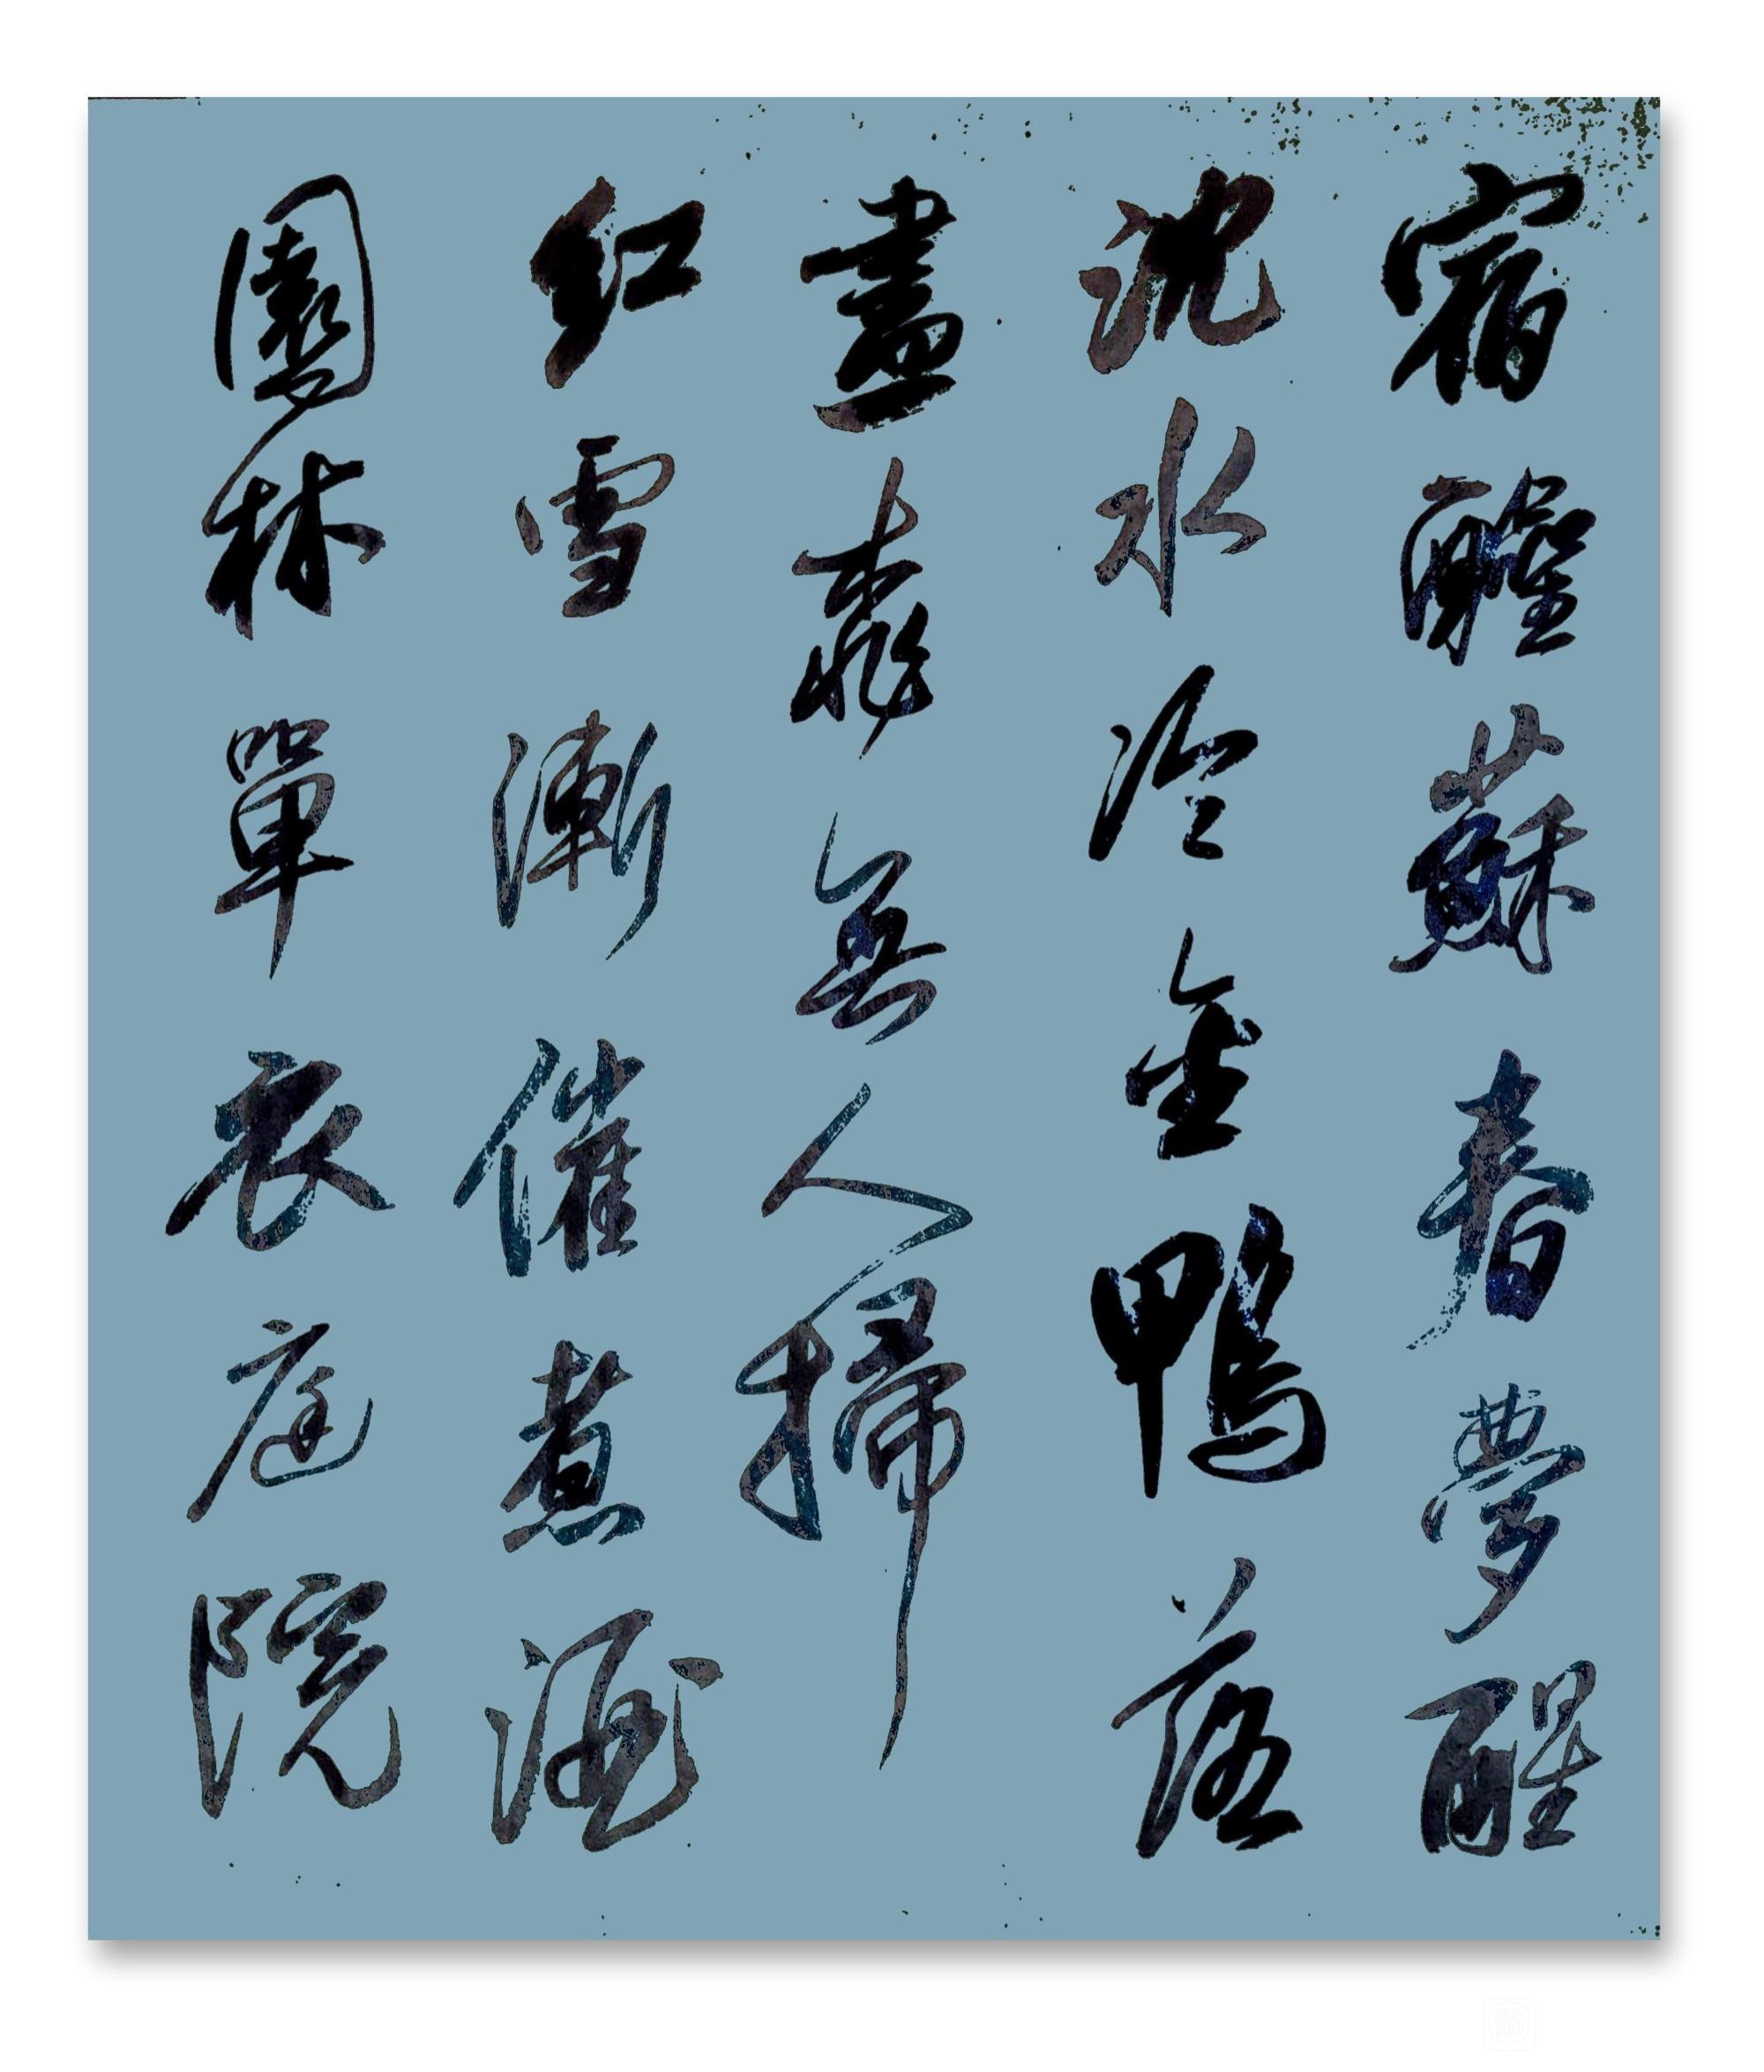 宿酲蘇春夢醒
沈水冷金鴨落
盡桃無人掃
紅雪漸催煮酒
園林單衣庭院